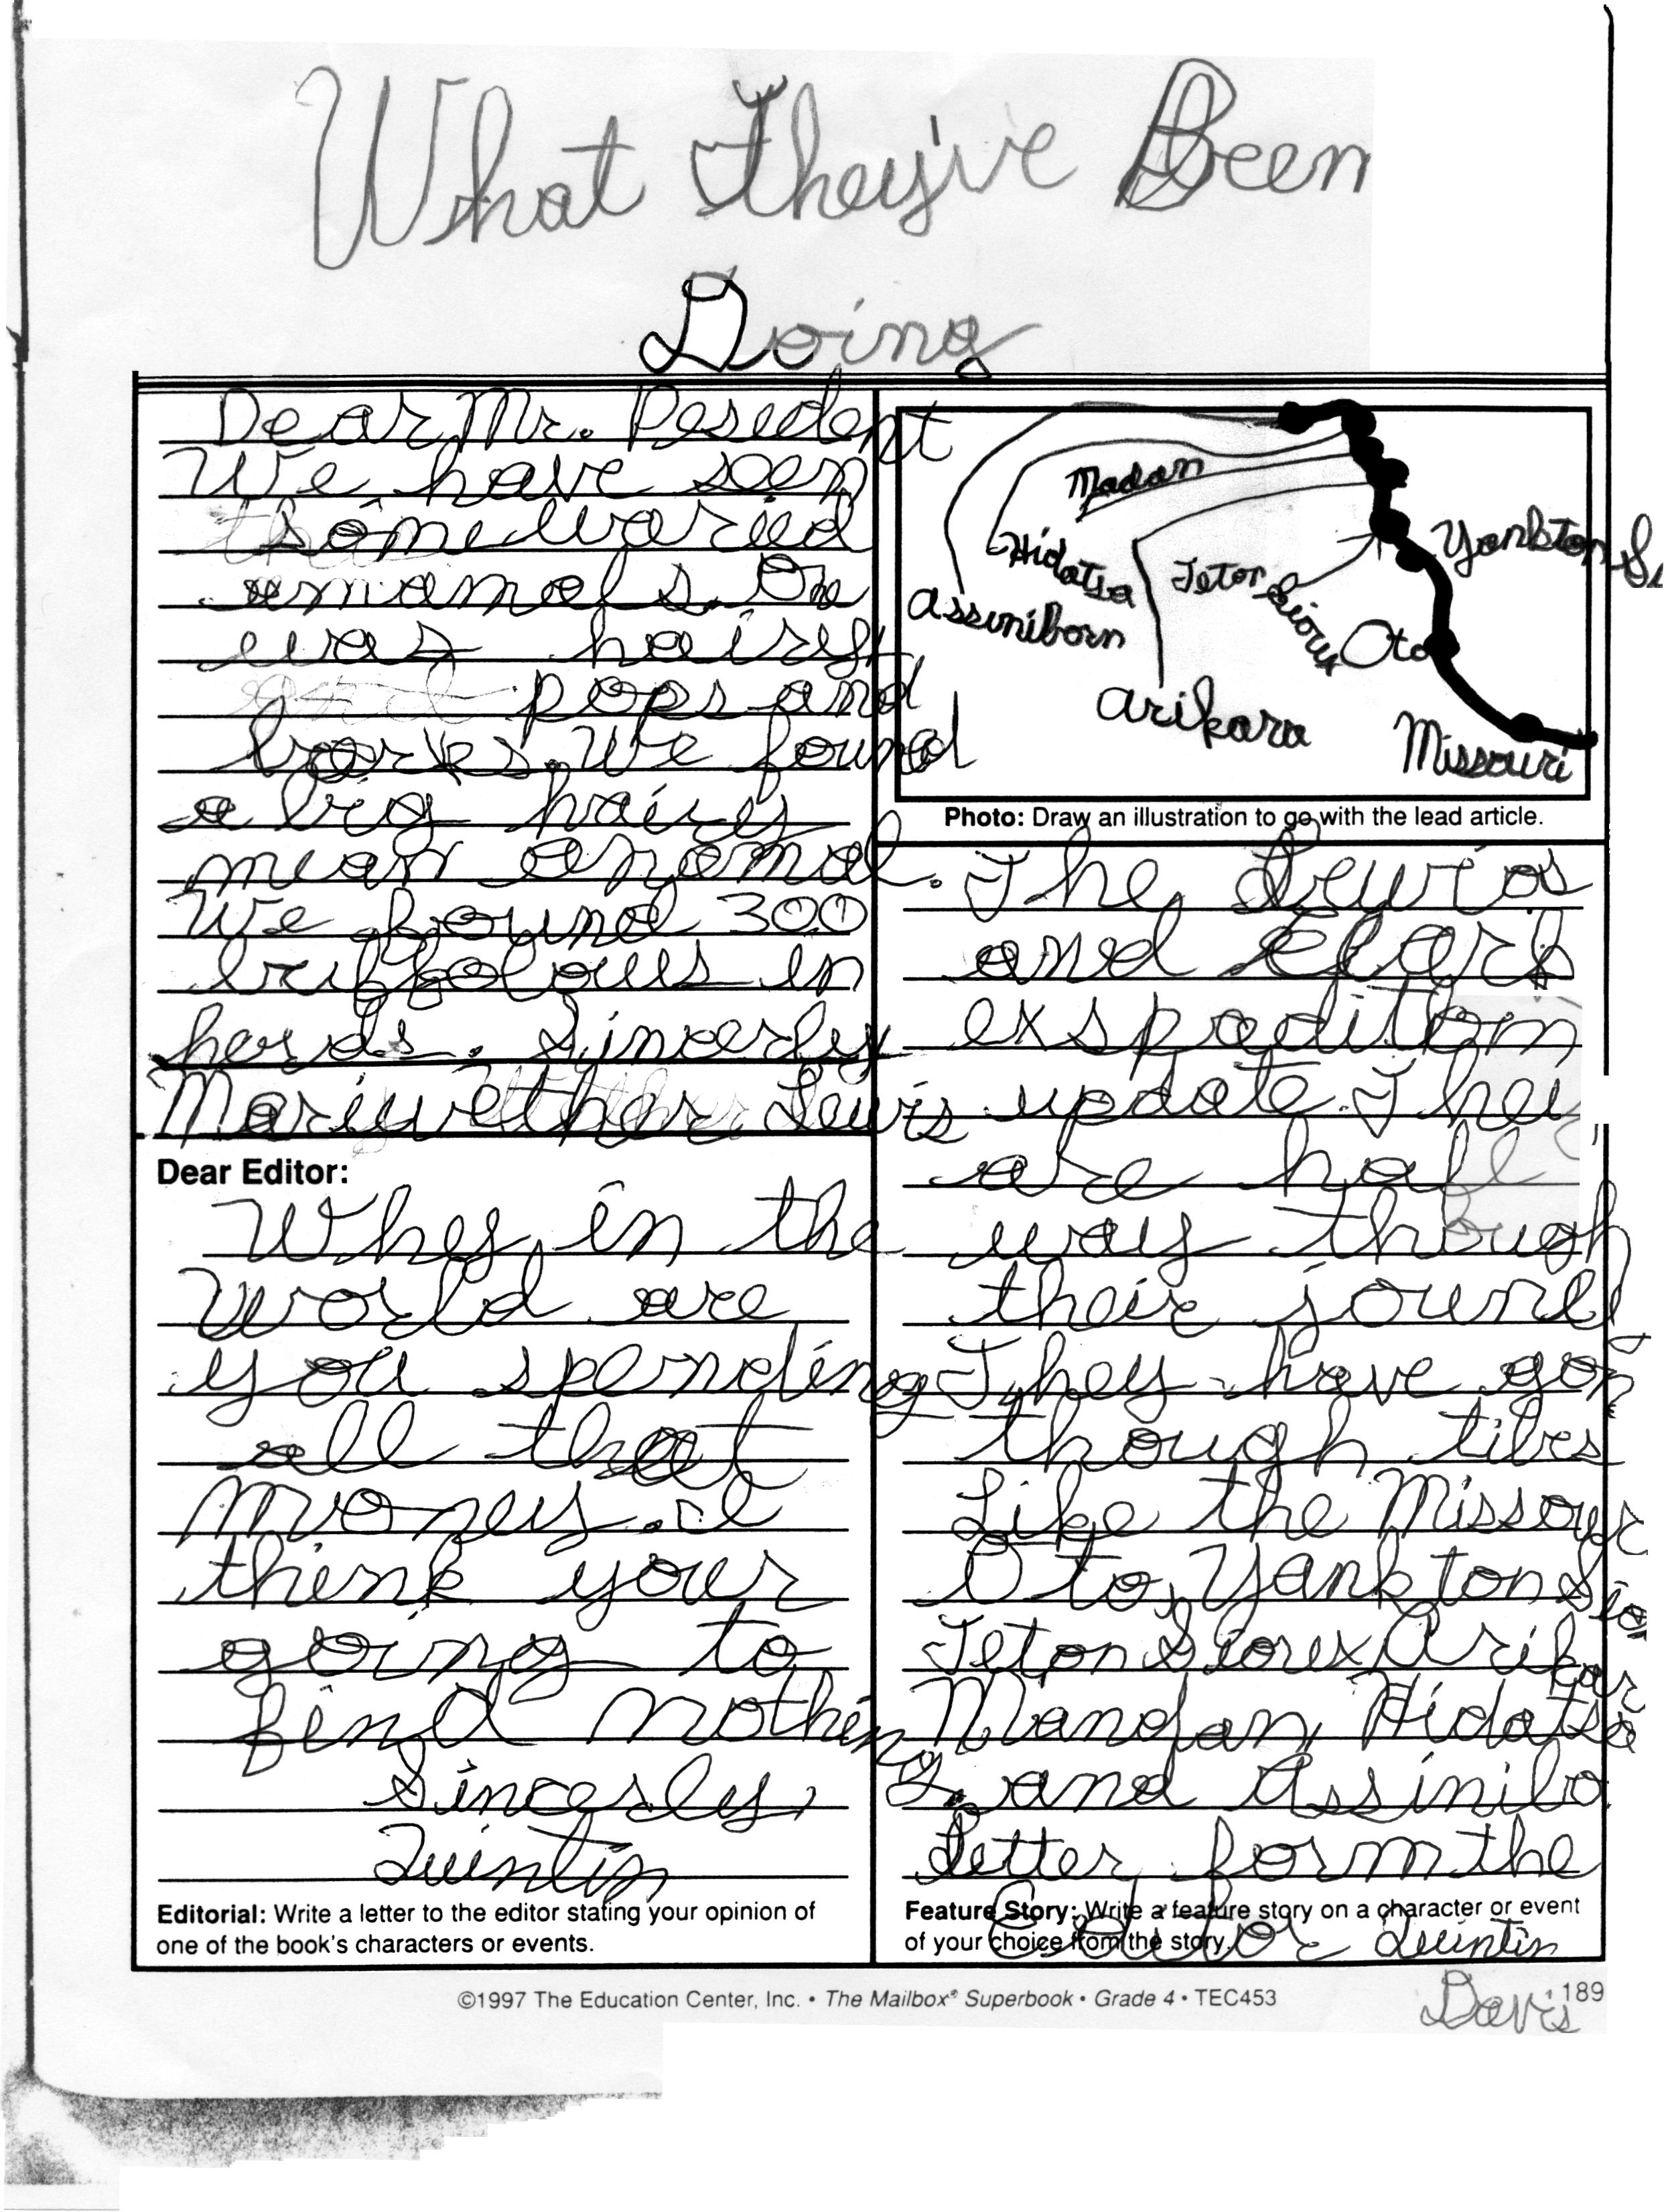 What They've Been
Doing
Dear Mr. Pesedent
We have seen
some waried
anamals. One
was hairy
pops and
barkes. We found
a big hairy
mean anomal.
We found 300
buffolous in
herds. Sincerly
Mariwether Lewis
Dear Editor:
Whey in the
world are
you spending
all that
money. I
think your
going to
find nothing.
Sincerly,
Quintin
Editorial: Write a letter to the editor stating your opinion of
one of the book's characters or events.
Madan
Hidatsa
Assiniborn
Teton Sioux
Yankton Si
Oto
Arikara
Missouri
Photo: Draw an illustration to go with the lead article.
The Lewis
and Clark
exspadition
update. They
are half
way though
their journey
They have gon
though tibes
Like the Missour
Oto, Yankton Sio
Teton Siouex, Arikar
Mandan, Hidatsa
and Assinibo
Letter form the
Editor Quintin
Davis
Feature Story: Write a feature story on a character or event
of your choice from the story.
©1997 The Education Center, Inc. • The Mailbox® Superbook • Grade 4 • TEC453
189